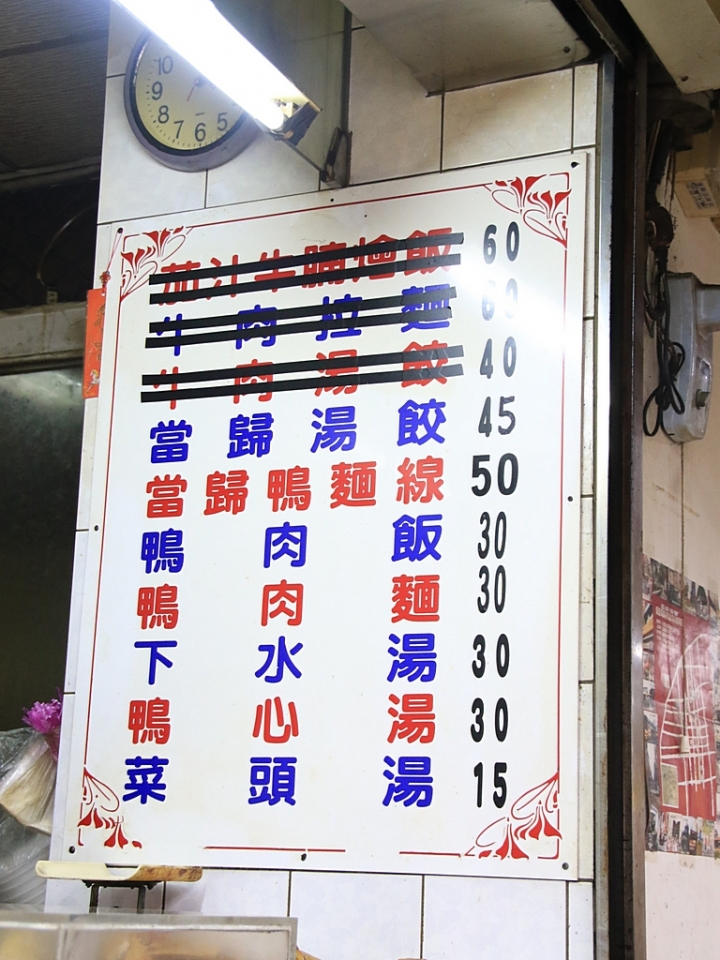 10
9
8
7
6
5
茄汁牛腩燴飯 60
牛肉拉麵 60
牛肉湯餃 40
當歸湯餃 45
當歸鴨麵線 50
鴨肉飯 30
鴨肉麵 30
下水湯 30
鴨心湯 30
菜頭湯 15